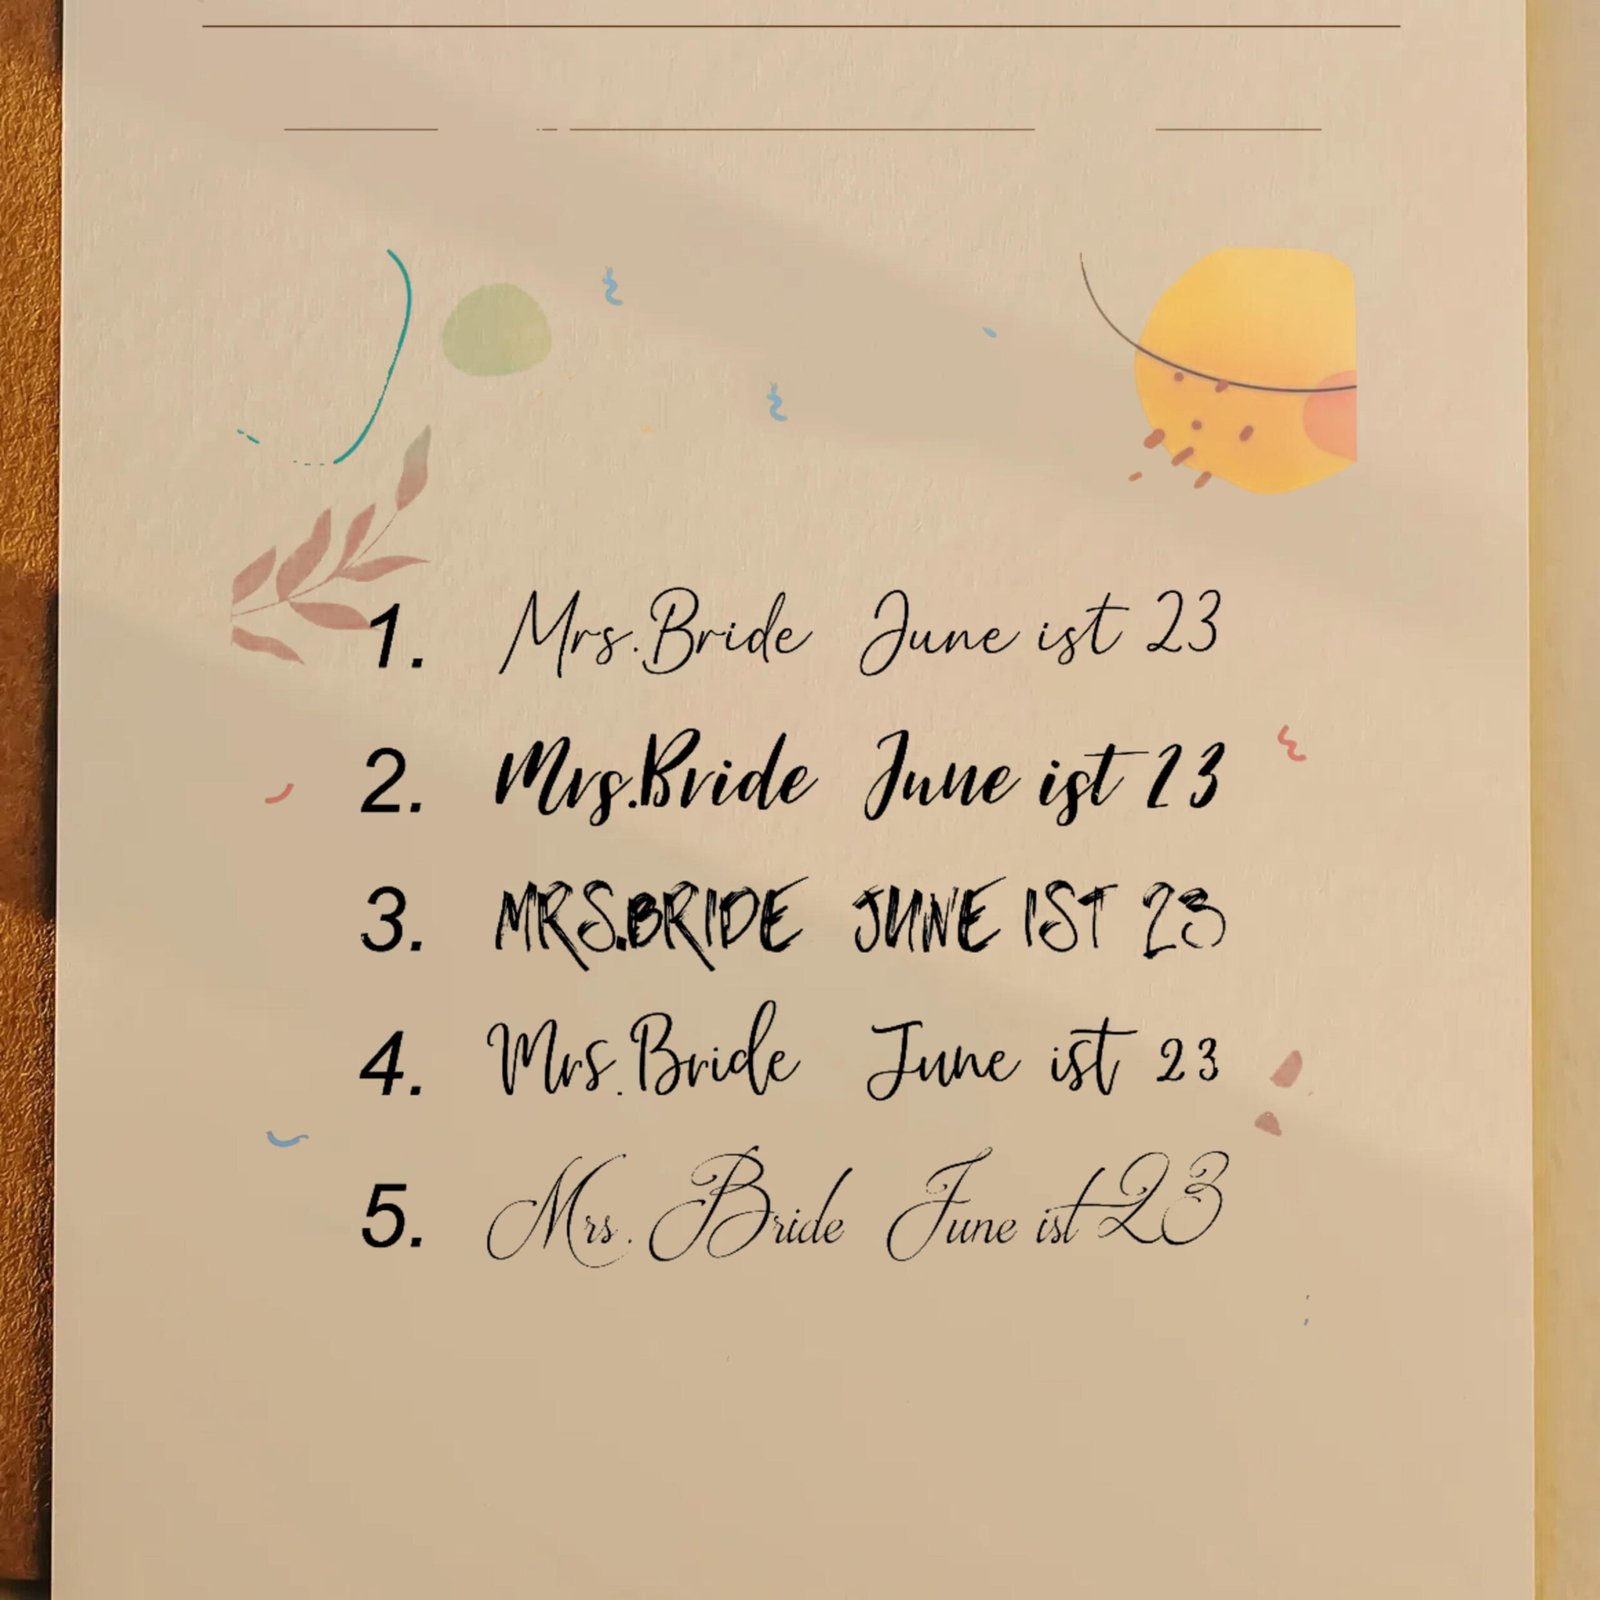 1. Mrs.Bride June ist 23
2. Mrs.Bride June ist 23
3. MRS.BRIDE JUNE IST 23
4. Mrs.Bride June ist 23
5. Mrs. Bride June ist 23